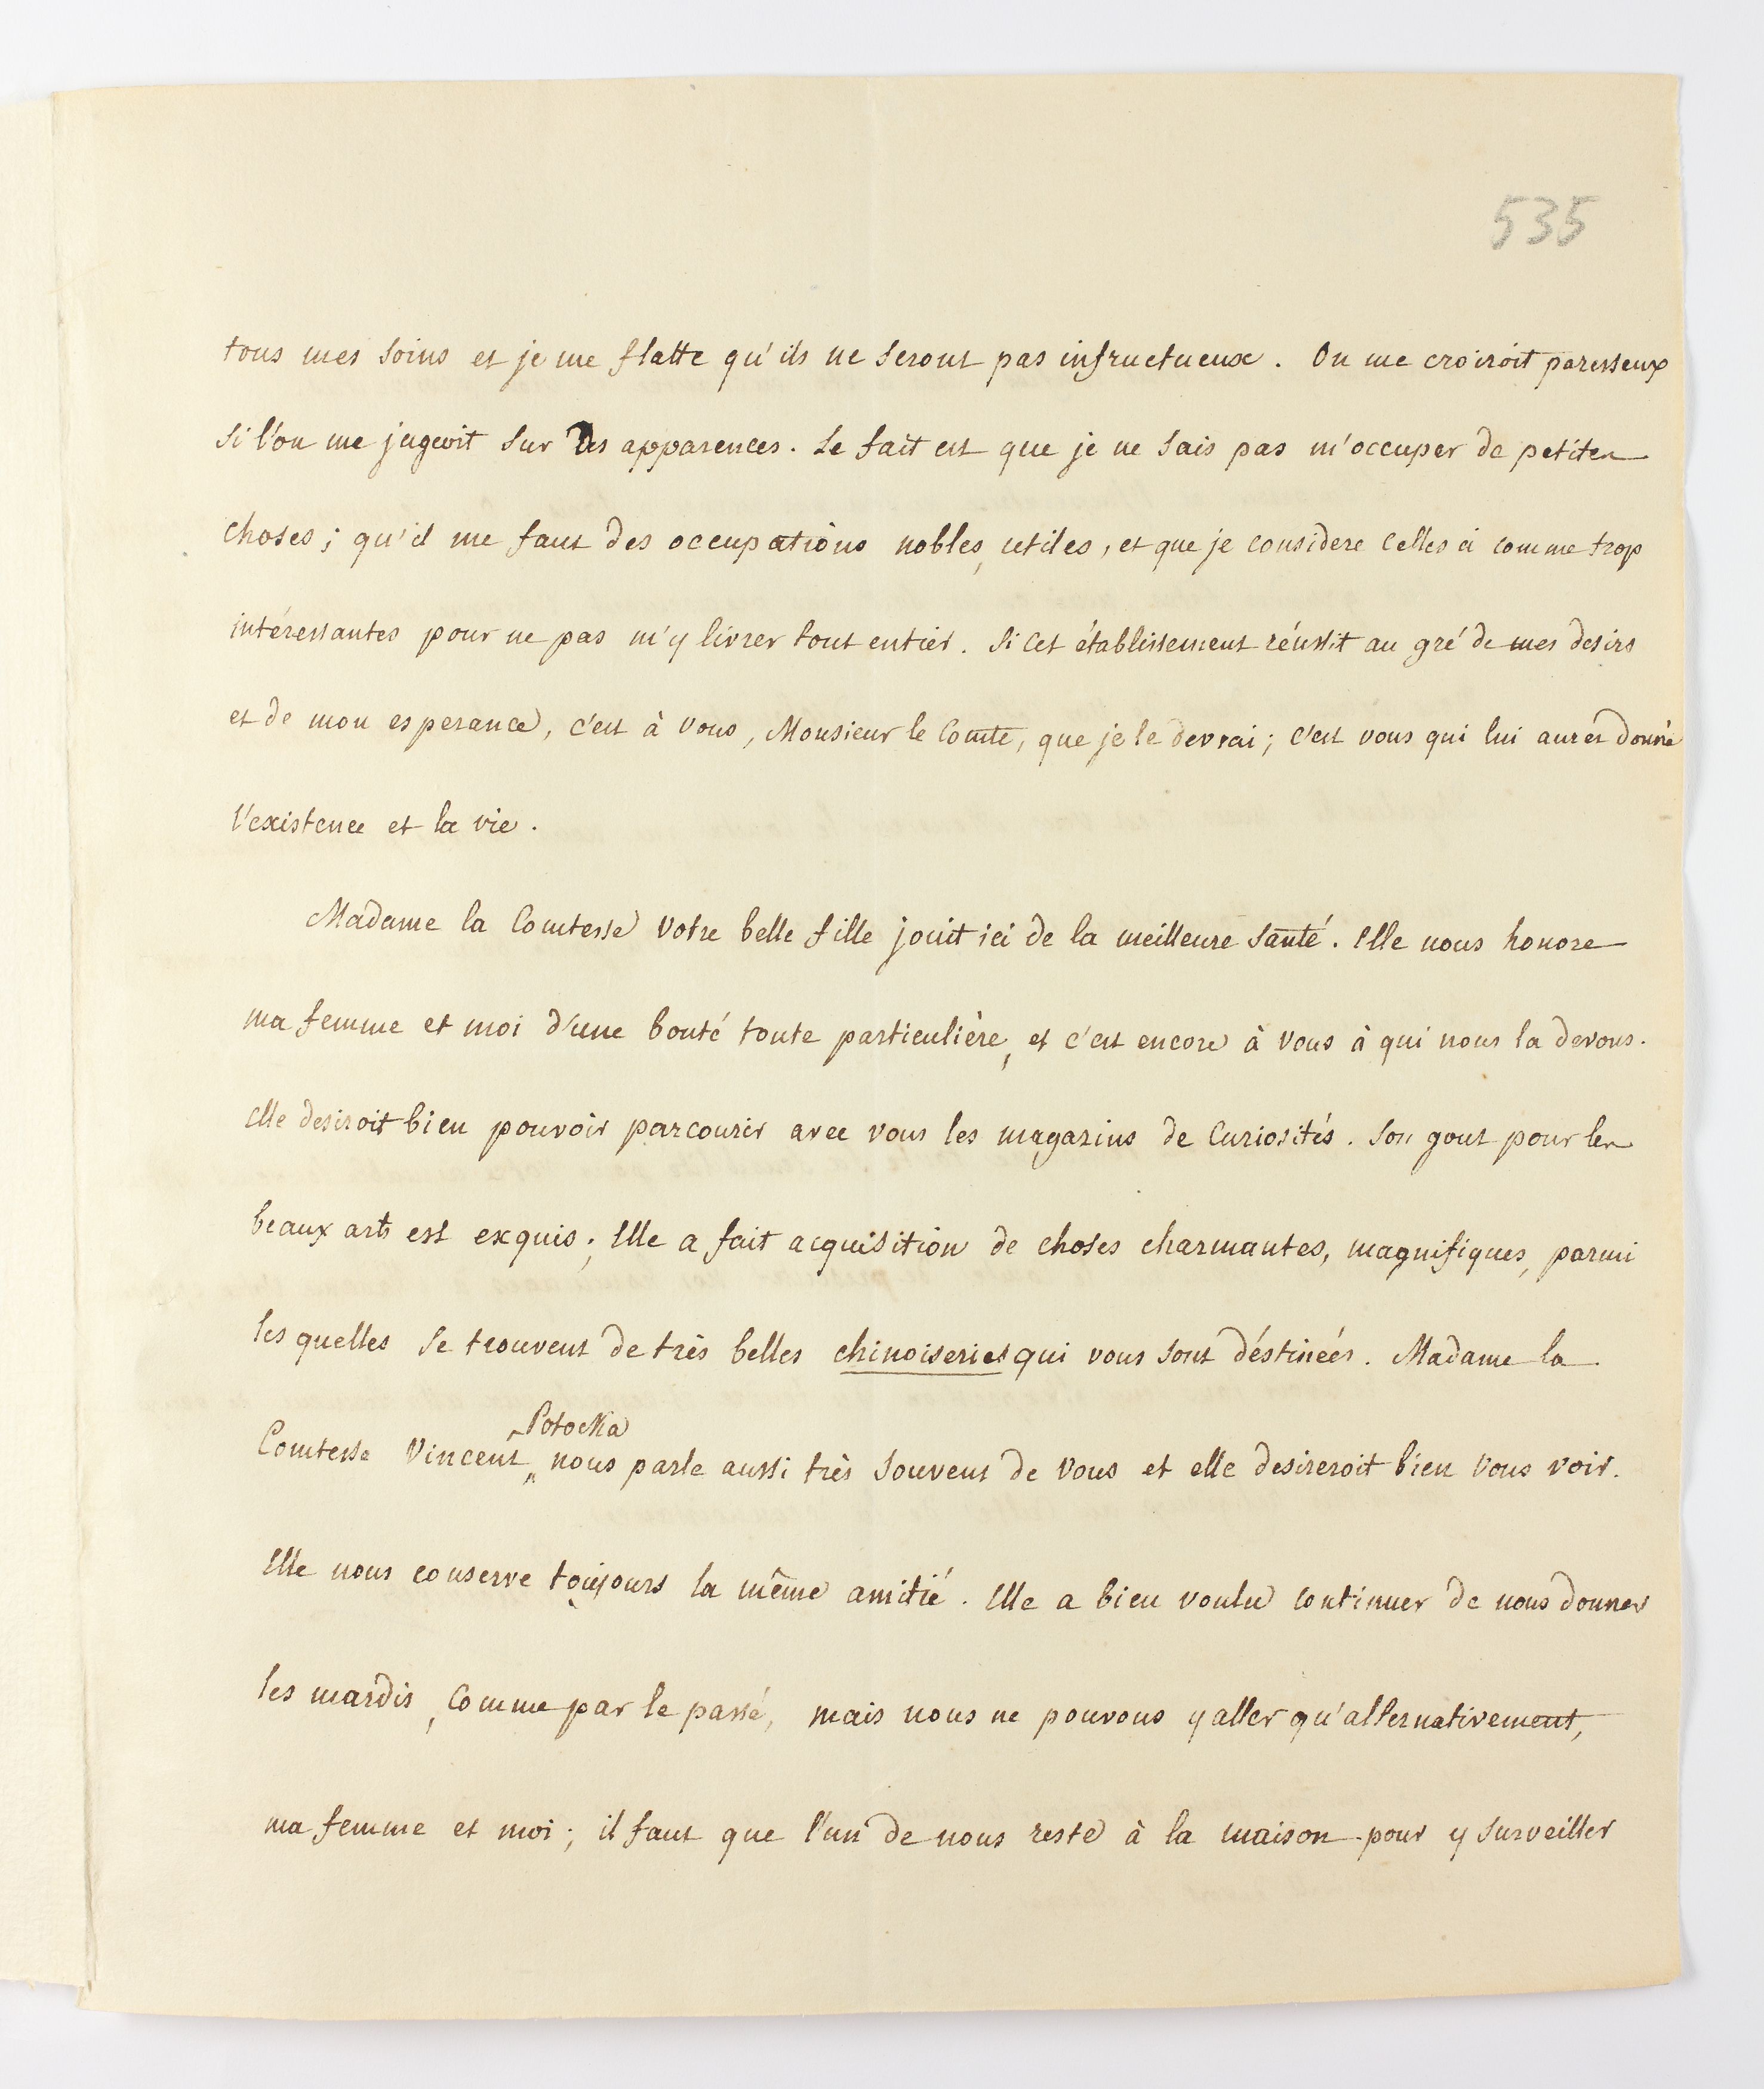 535
tous mes soins et je me flatte qu'ils ne seront pas infructueux. On me croiroit paresseux
si l'on me jugeoit sur des apparences. Le fait est que je ne sais pas m'occuper de petites
choses; qu'il me faut des occupations nobles, utiles, et que je considere celles ci comme trop
intéressantes pour ne pas m'y livrer tout entier. Si cet établissement réussit au gré de mes desirs
et de mon esperance, c'est à vous, Monsieur le Comte, que je le devrai; c'est vous qui lui aurés donné
l'existence et la vie.
Madame la Comtesse votre belle fille jouit ici de la meilleure santé. Elle nous honore
ma femme et moi d'une bonté toute particulière, et c'est encore à vous à qui nous la devons.
Elle desiroit bien pouvoir parcourir avec vous les magazins de Curiosités. Son gout pour les
beaux arts est exquis; Elle a fait acquisition de choses charmantes, magnifiques, parmi
les quelles se trouvent de très belles chinoiseries qui vous sont déstinées. Madame la
Potocka
Comtesse Vincent " nous parle aussi très souvent de vous et elle desireroit bien vous voir.
Elle nous conserve toujours la même amitié. Elle a bien voulu continuer de nous donner
les mardis, comme par le passé, mais nous ne pouvons y aller qu'alternativement,
ma femme et moi; il faut que l'un de nous reste à la maison pour y surveiller